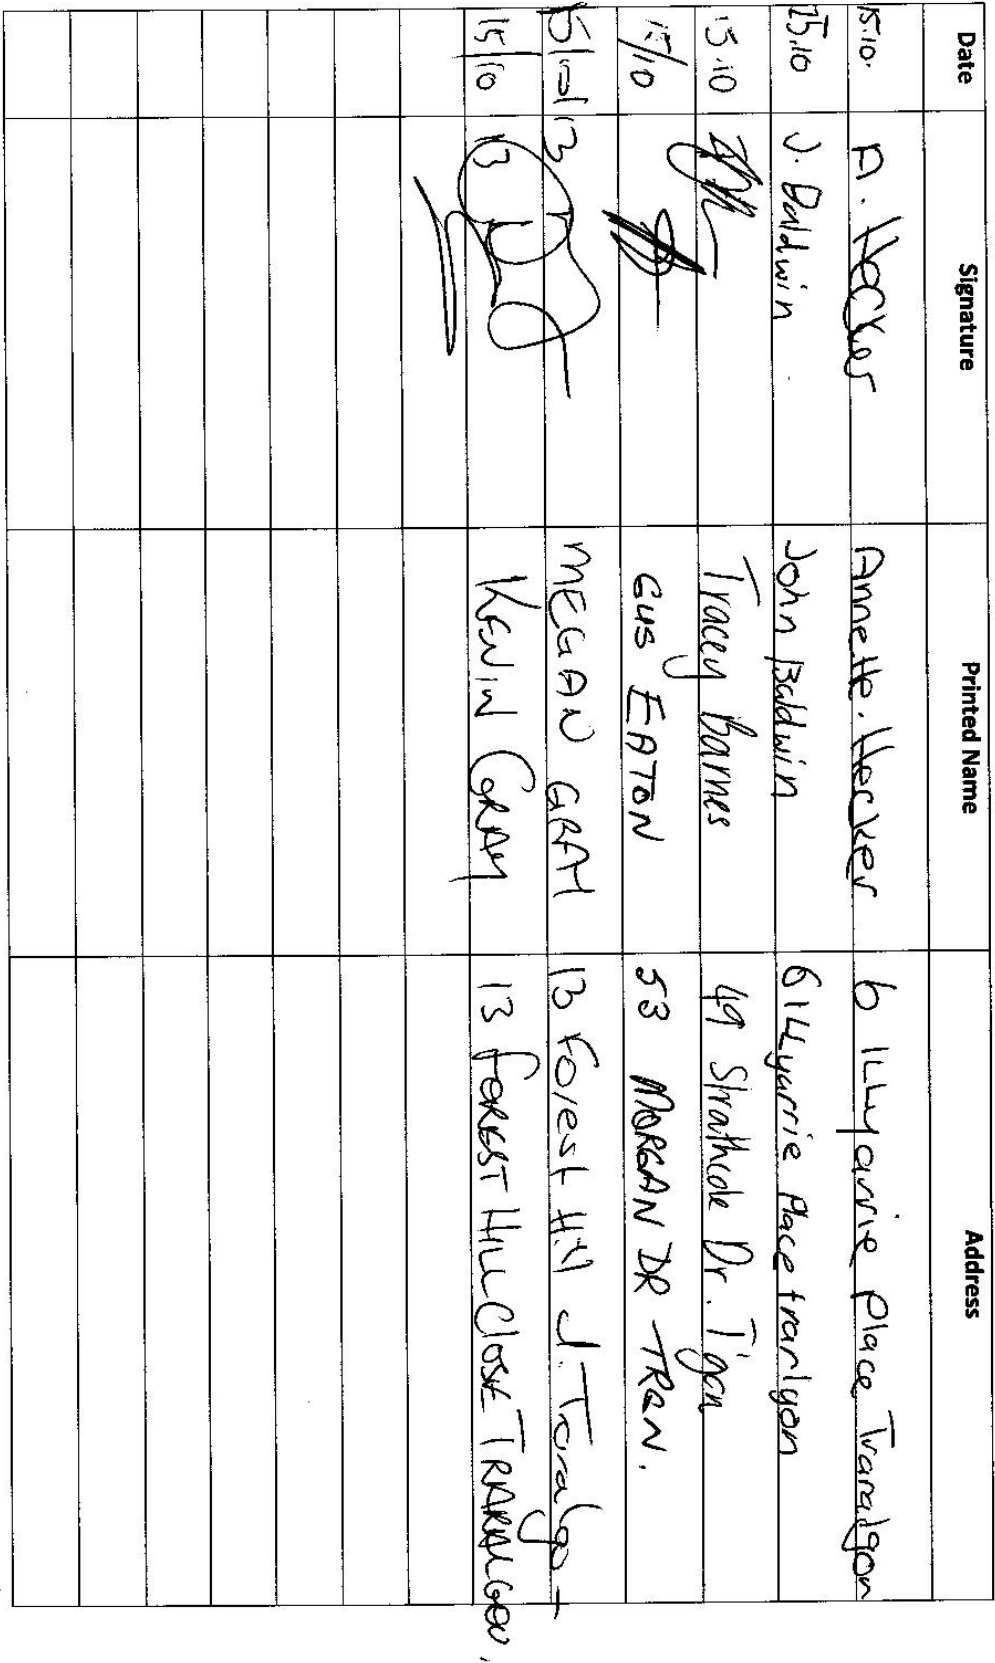 Date Signature Printed Name Address
15.10. A. Hecker Annette. Hecker 6 ILLyarrie Place Traralgon
15.10 J. Baldwin John Baldwin 6 ILLyarrie Place trarlgon
15.10 Tracey Barnes 49 Strathcole Dr. T'gon
15/10 GUS EATON 53 MORGAN DR TRGN.
15/10/13 MEGAN GRAY 13 Forest Hill Traralgo
15/10 13 KEVIN GRAY 13 FOREST HILL CLOSE TRARALGON,